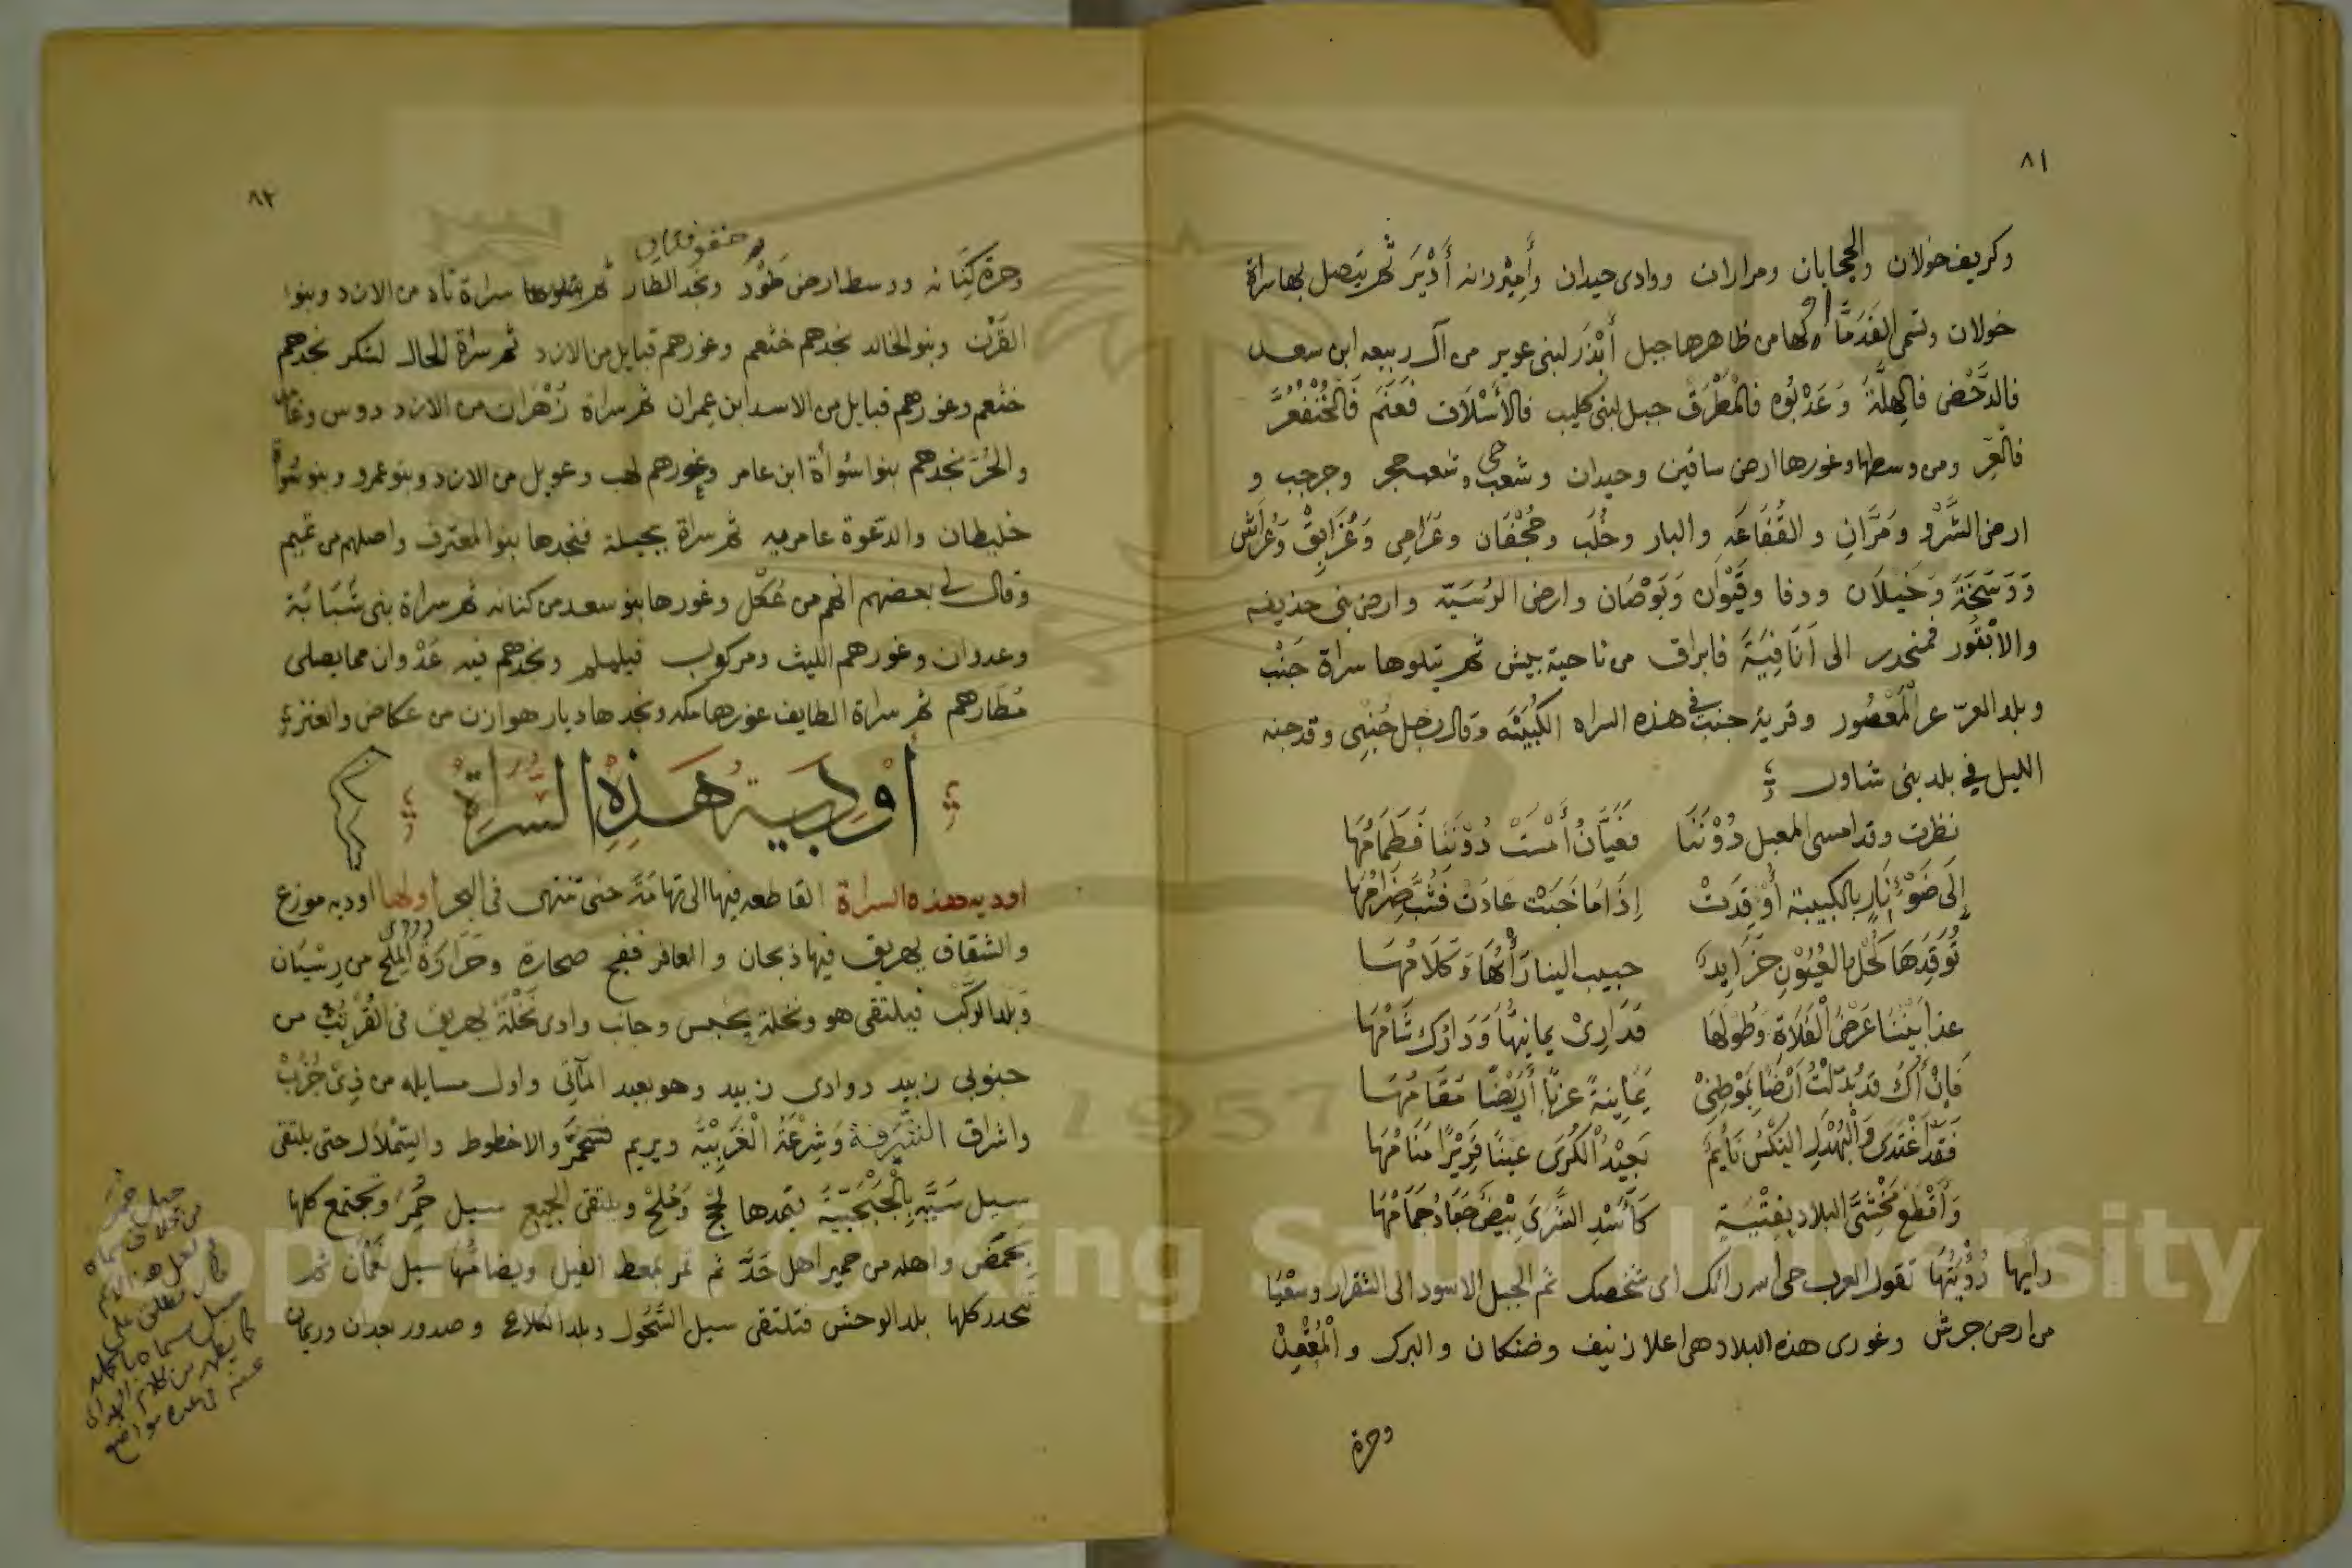 ٨١
وكريف خولان والحجابان ومراران ووادى حيدان وأميرزانه أدير ثم يتصل بها سراة
خولان وتسمى القدّ ما اولها من ظاهرها جبل أبذر لبنى عوير من آل ربيعه ابن سعد
فالدحض فالهلّة وعدبوه فالمطرق جبل لبنى كليب فالأسلاف فعنم فالخنفعر
فالعر ومن وسطها وغورها ارض ساقين وحيدان وشعب حى وشعب حجر وجرجب و
ارض الشرو ومرّان والقفاعه والبار وخلب وجحفان وعرامى وغرابق وعراش
ودسخة وخيلان ودفا وقيوان وبوصان وارض الرسيّه وارض بنى حذيفه
والأبقور فمنحدر الى أنافية فابراق من ناحية بيش ثم يتلوها سراة جنب
وبلد العرّ عر المعصور وقرية جنب فى هذه السراه الكبيبه وقال رجل جنبى وقد جنه
الليل في بلد بنى شاور
نظرت وقد امسى المعيل دوننا فعيّان أمست دوننا فظمامها
إلى ضوء نار بالكبيبة أوقدت إذا ما خبت عادت فشب ضرامها
توقدها كحل العيون خرايد حبيب الينا رأيها وكلامها
عدا بيننا عرض الفلاة وطولها فدارى يمانيها ودارك شامها
فإن أك قد بدلت أرضا بموطنى يمانية غربا أريضا مقامها
فقد أغتدى والبهدل النكس نايم بعيد الكرى عينا قريرا منامها
وأقطع مخشى البلاد بفتية كأسد الشرى بيض جعاد جمامها
رايها رؤيتها تقول العرب حى الله رأئك اى شخصك ثم الجبل الاسود الى الشقرار وسعيا
من ارض جرش وغورى هذه البلاد هى اعلا زنيف وضنكان والبرك والمعقد
وحرة
٨٢
وحرة كنانه ووسط ارض طود ونجد الطار ثم يتلوها سراة ناه من الازد وبنوا
القرن وبنو الخالد نجدهم خثعم وغورهم قبايل من الازد ثم سراة الحال لشكر نجدهم
خثعم وغورهم قبايل من الاسد ابن عمران ثم سراة زهران من الازد دوس وغامد
والحرّ نجدهم بنوا سواة ابن عامر وغورهم لهب وعويل من الازد وبنو عمرو وبنو سواة
خليطان والدعوة عامريه ثم سراة بجيلة فنجدها بنو المعترف واصلهم من تميم
وقال لى بعضهم انهم من عكل وغورها بنو سعد من كنانه ثم سراة بنى شبابة
وعدوان وغورهم الليث ومركوب فيلملم ونجدهم فيه عدوان مما يصلى
مطارهم ثم سراة الطايف غورها مكه ونجدها ديار هوازن من عكاض والعنز
أودية هذه السراة
اوديه هذه السراة القاطعه فيها الى تهامة حتى تنتهى فى البحر اولها اوديه موزع
والشقاق يهريق فيها ذبحان والمعافر ففج صحارة وحرازة الملح من رسيان
وبلد الركب فيلتقى هو ونخلة يجبس وجانب وادى نخلة يهريق فى القرتب من
جنوبى زبيد ووادى زبيد وهو بعيد المآتى واول مسايله من ذى جزب
واشراق الشرفة وشرعة الغربية ويريم فتحمر والاخطوط والتملال حتى يلتقى
سيل سيّة بالجبجبية فيمدها لج وملح ويلتقى الجميع سيل حمر وتجتمع كلها
بحمض واهله من حمير اهل حدّ ثم تمر بمعط الفيل ويضامها سيل نعمان ثم
تنحدر كلها بلد الوحش فتلتقى سيل السحول وبلد الكلاع وصدور بعدان وريمان
جبل حمر
من مخلاف سماه